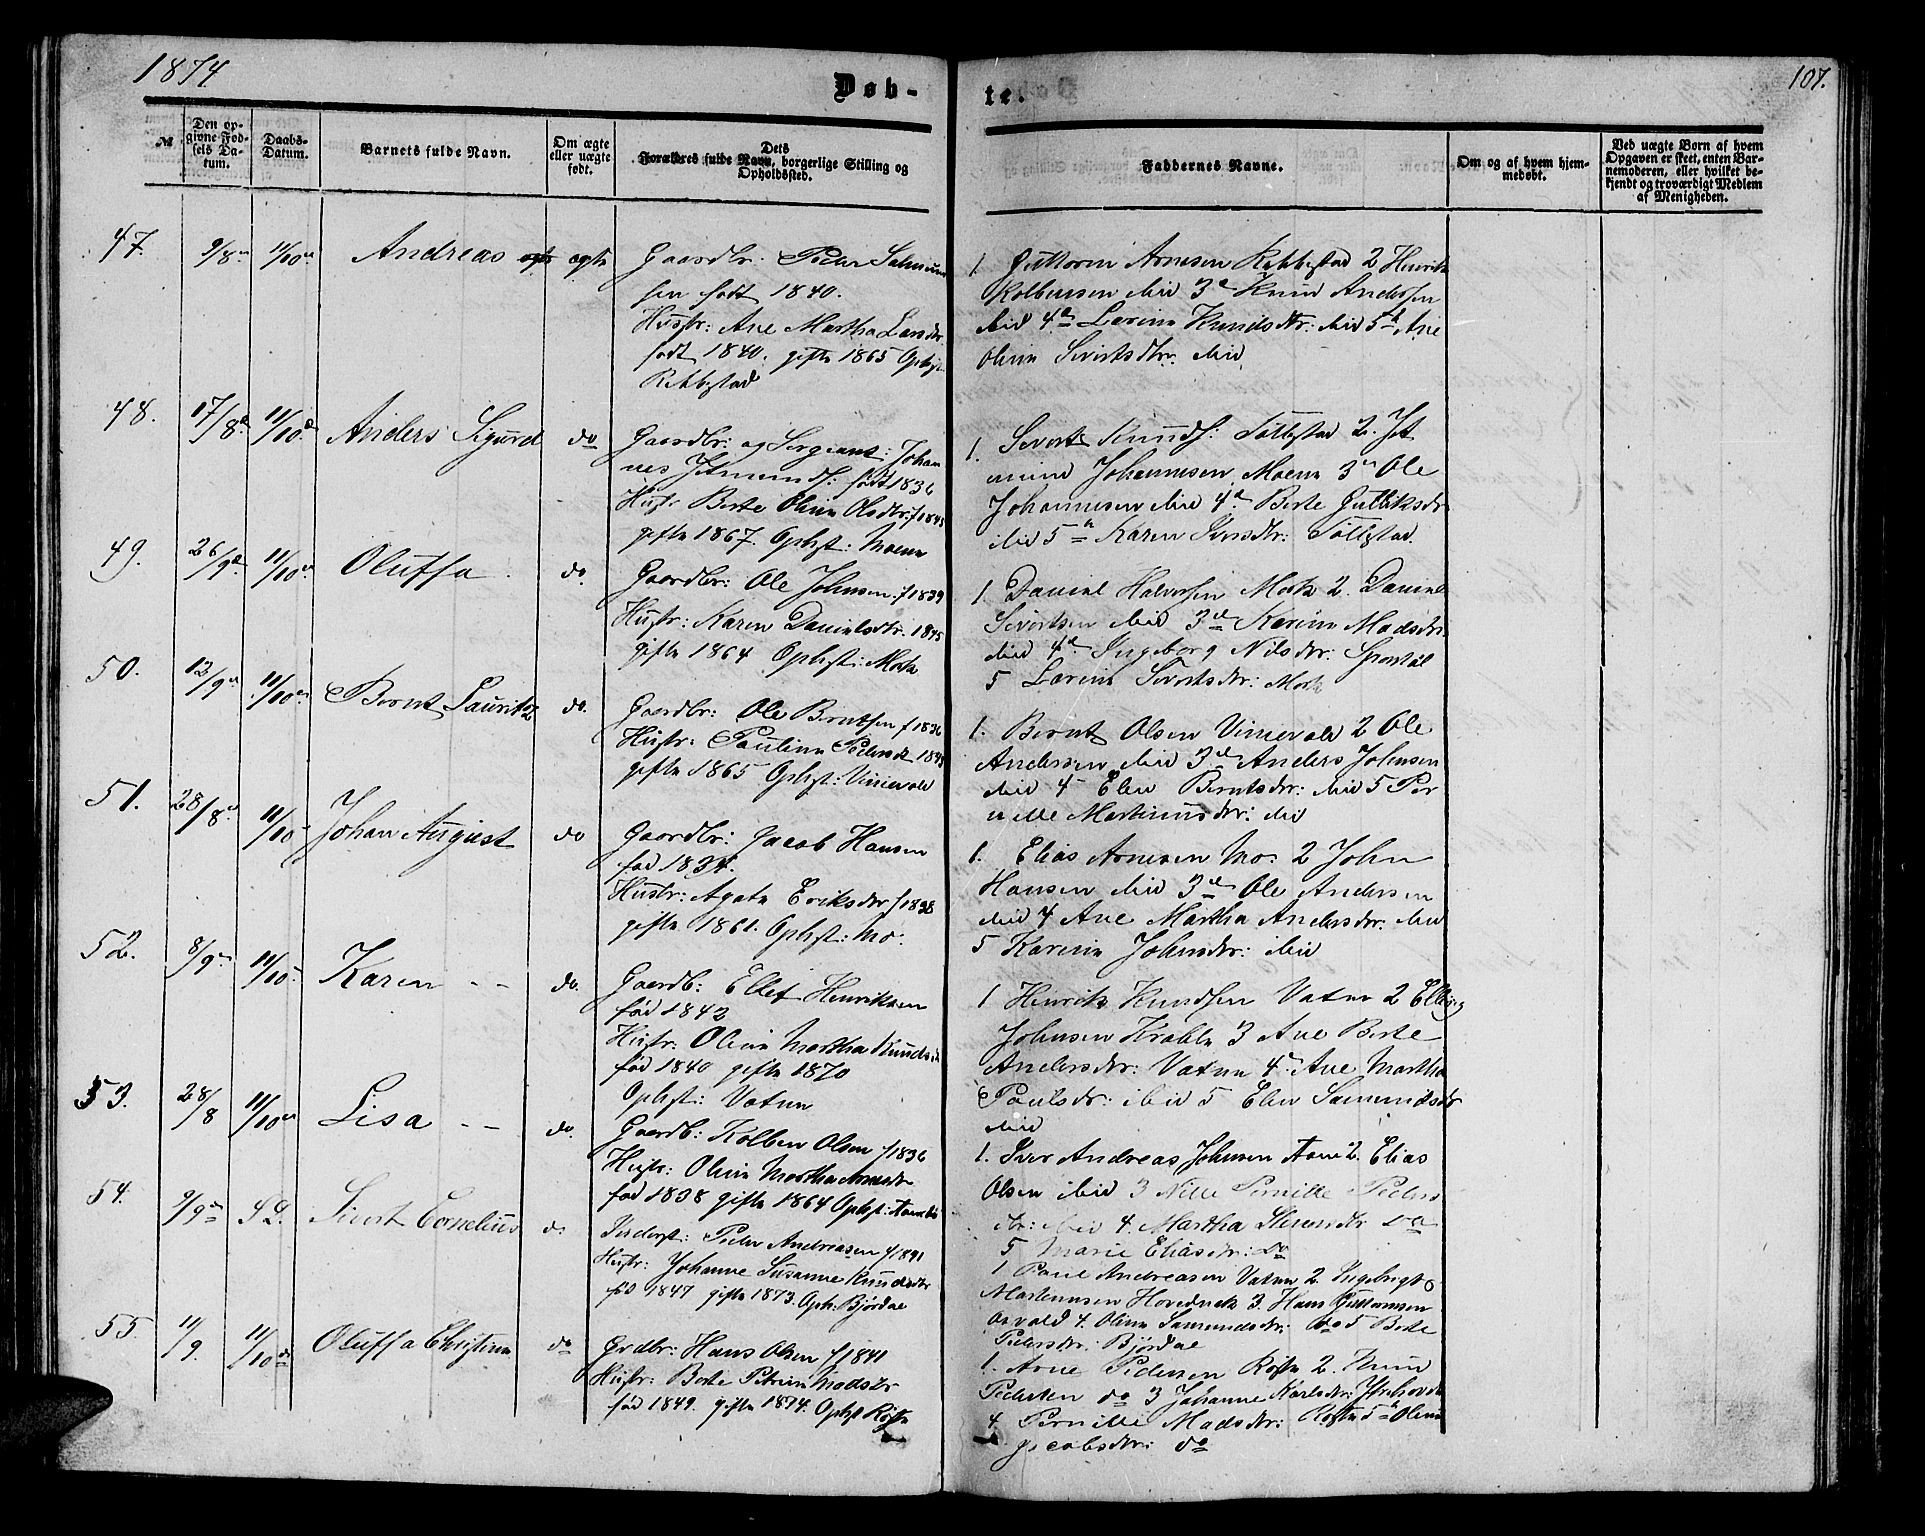 1874
Døb-
te.
107.
№
Den op-
givne Fød-
sels Da-
tum.
Daabs-
Datum.
Barnets fulde Navn.
Om ægte
eller uægte
født.
Dets
Forældres fulde Navn, borgerlige Stilling og
Opholdssted.
Faddernes Navne.
Om og af hvem hjem-
medøbt.
Ved uægte Børn af hvem
Opgaven er skeet, enten Bar-
nemoderen, eller hvilket be-
kjendt og troværdigt Medlem
af Menigheden.
47.
9/8
11/10
Andreas
ægte
Gaardbr: Peder
sen født 1840.
Hustr: Ane Martha Larsdtr
født 1840. gifte 1865 Ophst
Rebbestad
1. Guttorm Arnesen Rebbestad 2 Henrik
Kolbensen ibid 3 Knud Andersen
ibid 4 Lovine Knudsdtr: ibid 5 Ane
Oline Sivertsdtr. ibid
48.
17/8
11/10
Anders Sigurd
do
Gaardbr: og Sergiant: Johan
nes Jetmunds: født 1836
Hustr Berte Oline Olsdtr: f 1845
gifte 1867. Ophst: Moene
1. Sivert Knuds: Töllestad 2. Jet
mund Johannesen Moene 3 Ole
Johannesen ibid 4 Berte Gulliksdr
ibid 5 Karen Iversdtr: Töllestad
49.
26/9
11/10
Oluffa
do.
Gaardbr: Ole Johnsen f 1839
Hustr: Karen Danielsdtr. 1845
gifte 1864 Ophst: Mork
1. Daniel Halvorsen Mork 2. Daniel
Sivertsen ibid 3 Karine Madsdtr
ibid 4 Ingeborg Nilsdtr:
5 Lovine Sivertsdtr: Mork
50.
12/9
11/10
Bernt Lauritz
do.
Gaardbr: Ole Berntsen f 1836
Hustr: Pauline Pedersdt 1843
gifte 1865 Ophst: Vinievold
1. Bernt Olsen Vinievold 2 Ole
Andersen ibid 3 Anders Johnsen
ibid 4 Elen Berntsdtr: ibid 5 Per
nille Martinusdtr: ibid
51.
28/8
11/10
Johan August
do
Gaardbr: Jacob Hansen
fød 1834.
Hustr: Agate Eriksdtr f 1838
gifte 1861. Ophst: Mo.
1. Elias Arnesen Mo. 2 John
Hansen ibid 3 Ole Andersen
ibid 4 Ane Martha Andersdtr. ibid
5 Karine Johnsdtr: ibid
52.
8/9
11/10
Karen
do.
Gaardb: Ellef Henriksen
fød 1842
Hustr: Oline Martha Knudsd
fød 1840 gifte 1870
Ophst: Vatne
1 Henrik Knudsen Vatne 2 Elling
Johnsen Krabbe 3 Ane Berte
Andersdtr: Vatne 4 Ane Martha
Poulsdr: ibid 5 Elen Samundsdtr
ibid
53.
28/8
11/10
Lisa
do.
Gaardb: Kolben Olsen f 1836
Hustr: Oline Martha Arnesdtr
fød 1838 gifte 1864 Ophst:
1. Iver Andreas Johnsen 2. Elias
Olsen ibid 3 Nille Pernille Peders
dtr: ibid 4. Martha do
5 Marie Eliasdtr: do
54.
9/9
S D.
Sivert Cornelius
do
Inderst: Peder Andreasen f 1841
Hustr: Johanne Susanne Knudsdtr
fød 1847 gifte 1873. Oph: Bjørdal
1 Paul Andreasen Vatne 2. Ingebrigt
Martinusen Hovednak 3. Hans Guttormsen
4. Oline Samundsdtr: do 5 Berte
Pedersdtr: Bjørdal
55
11/9.
11/10
Oluffa Christine
do
Grdbr: Hans Olsen f 1841
Hustr: Berte Petrine Madsdtr
fød 1849. gifte 1874. Ophst Röste
1. Arne Pedersen Röste 2. Knud
Pedersen do 3 Johanne Karlsdtr:
4 Pernille Madsdtr: Röste 5 Oline
Jacobsdtr: do